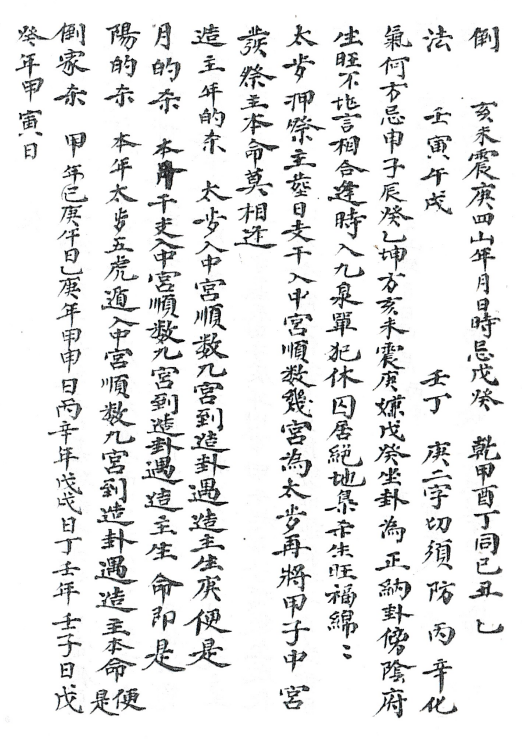 倒　亥未震庚四山年月日時忌戊癸　乾甲酉丁同巳丑　乙
法　壬寅午戌　壬丁　庚二字切須防　丙辛化
氣何方忌申子辰癸乙坤方亥未震庚嫌戊癸坐卦為正納卦傍陰府
生旺不地言相合逢時入九泉單犯休囚居絕地集吞生旺福綿〻
太歩押祭主塟日支干入中宮順数幾宮為太歩再將甲子中宮
發祭主本命莫相逆
造主年的杀　太歩入中宮順数九宮到造卦遇造主生庚便是
月的杀　本月干支入中宮順数九宮到造卦遇造主生命即是
陽的杀　本年太歩五虎遁入中宮順数九宮到造卦遇造主本命便是
倒家杀　甲年己庚午日乙庚年甲申日丙辛年戊戌日丁壬年壬子日戊
癸年甲寅日